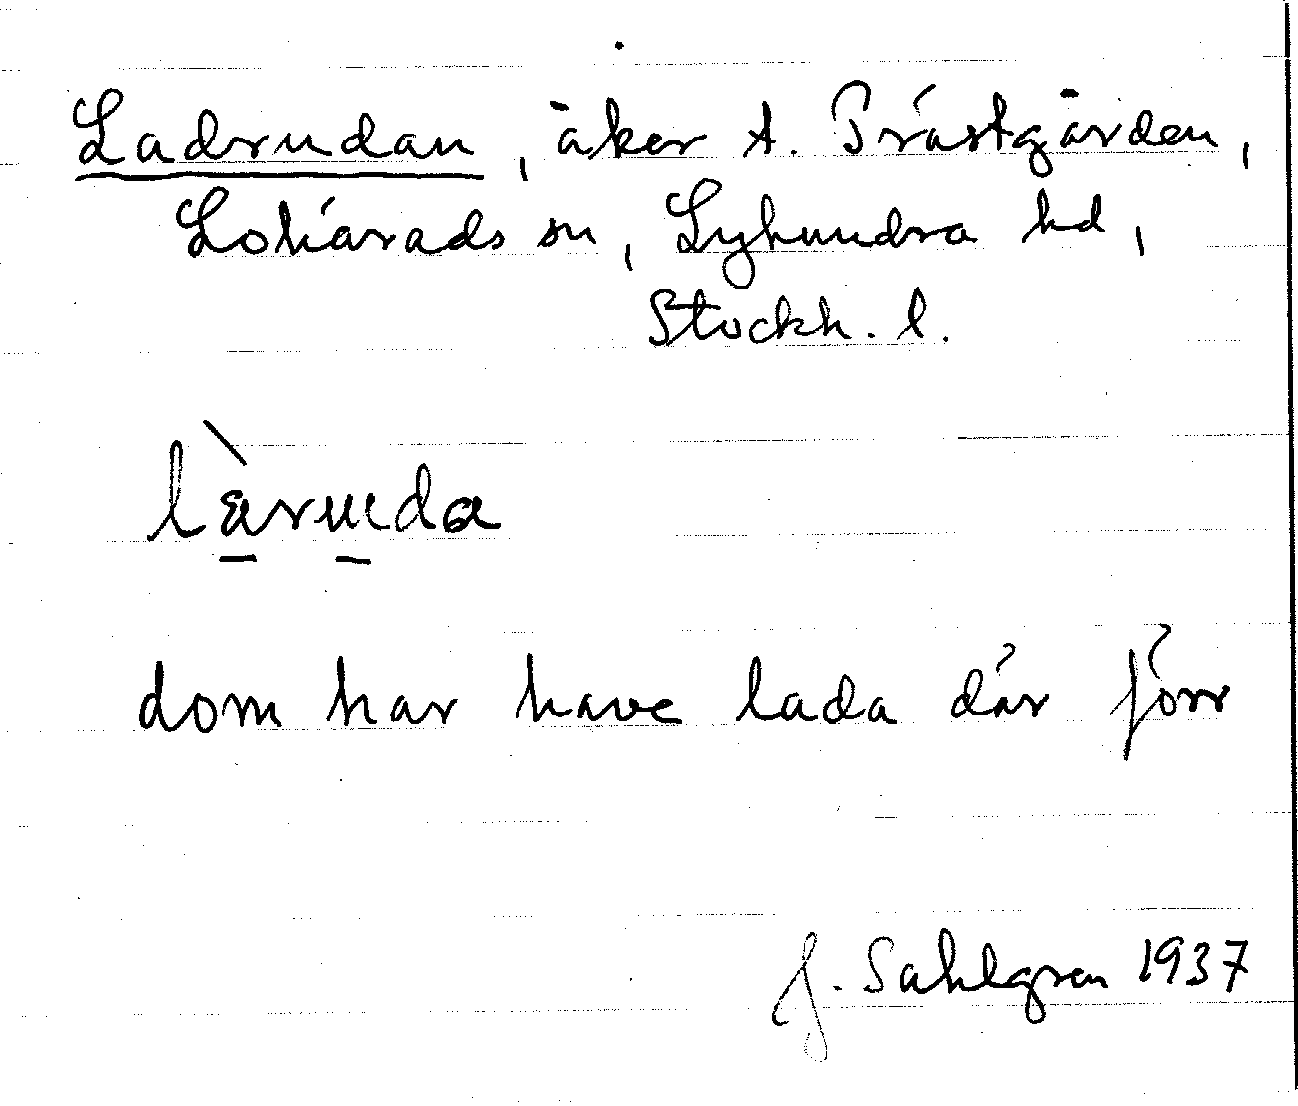 Ladrudan, åker t. Prästgården,
Lohärads sn, Lyhundra hd,
Stockh. l.
làruda
dom har have lada där förr
J. Sahlgren 1937